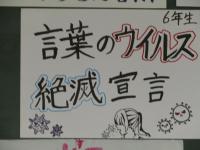 6年生
言葉のウイルス
絶滅宣言